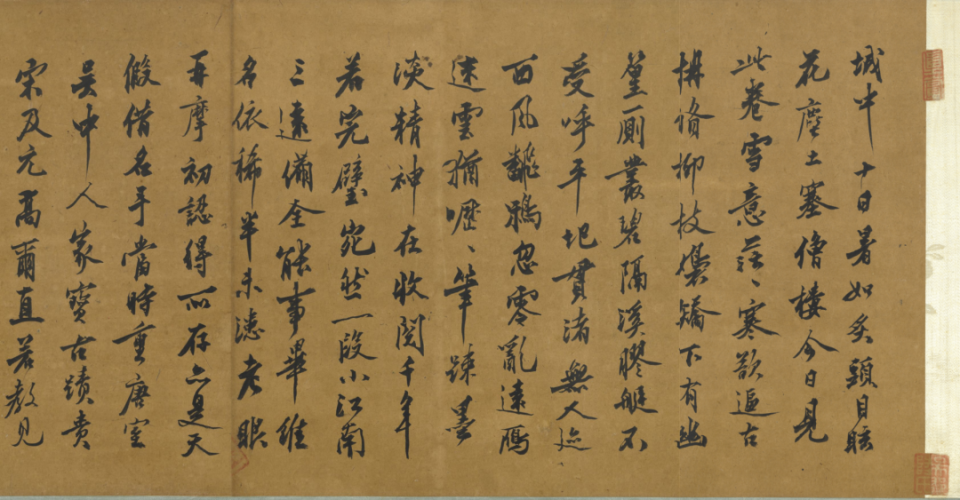 城中十日暑如炙頭目眩
花塵土塞僧樓今日見
此卷雪意茫、寒欲逼古
柳枝褭矯下有幽
篁厠叢碧隔溪膠艇不
受呼平圯貫渚無人迹
西風鴉忽零亂遠雁
迷雲猶嚦、筆踈墨
淡精神在收閱千年
若完璧宛然一段小江南
三遠備全能事畢維
名依稀半未漶老眼
再摩初認得所存亦是天
假借名手當時重唐室
吳中人家寶古蹟貴
宋及元高爾直若教見